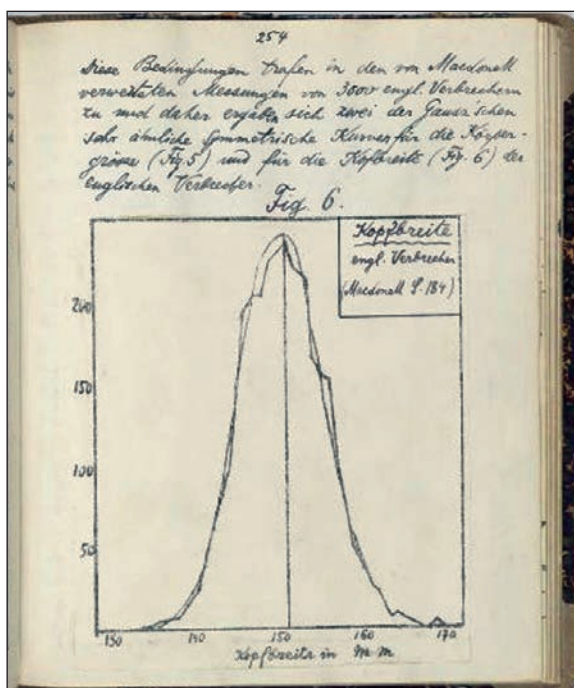 254
Diese Bedingungen trafen in den von Macdonell
verwerteten Messungen von 3000 engl. Verbrechern
zu und daher ergaben sich zwei der Gauss'schen
sehr ähnliche symmetrische Kurven für die Körper-
grösse (Fig. 5) und für die Kopfbreite (Fig. 6) der
englischen Verbrecher.
Fig. 6.
Kopfbreite
engl. Verbrecher
(Macdonell S. 184)
200
150
100
50
130 140 150 160 170
Kopfbreite in m m